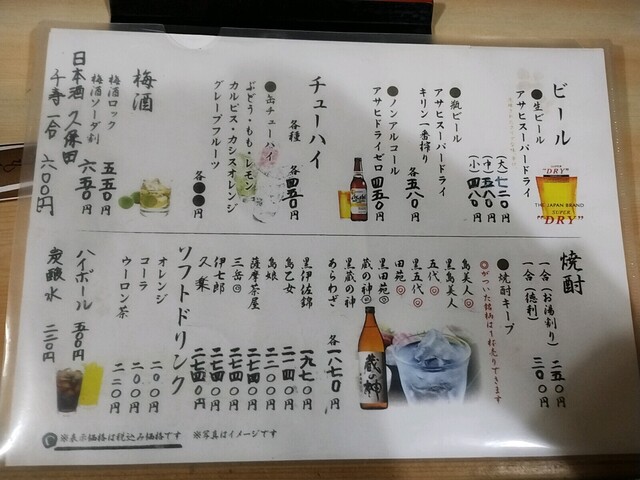 ビール
●生ビール
アサヒスーパードライ
(大)七二〇円
(中)五八〇円
(小)四八〇円
●瓶ビール
アサヒスーパードライ
キリン一番搾り
各五八〇円
●ノンアルコール
アサヒドライゼロ 四五〇円
チューハイ
各種 各四五〇円
●缶チューハイ
ぶどう・もも・レモン
カルピス・カシスオレンジ
グレープフルーツ
各 円
梅酒
梅酒ロック 五五〇円
梅酒ソーダ割 六五〇円
日本酒 久保田
千寿 一合 六〇〇円
SUPER
"DRY"
THE JAPAN BRAND
SUPER
"DRY"
焼酎
一合(お湯割り) 二五〇円
一合(徳利) 三〇〇円
●焼酎キープ
◎がついた銘柄は1杯売りできます
島美人◎
黒島美人
五代◎
黒五代◎
田苑◎
黒田苑
蔵の神◎
黒蔵の神
あらわざ
各一八七〇円
黒伊佐錦 一九七〇円
島乙女 二一四〇円
島娘 二二〇〇円
薩摩茶屋 二七四〇円
三岳◎ 二七四〇円
伊七郎 二七四〇円
久楽 二七五〇円
蔵の神
ソフトドリンク
オレンジ 二〇〇円
コーラ 二〇〇円
ウーロン茶 二二〇円
ハイボール 五〇〇円
炭酸水 二二〇円
※表示価格は税込み価格です
※写真はイメージです